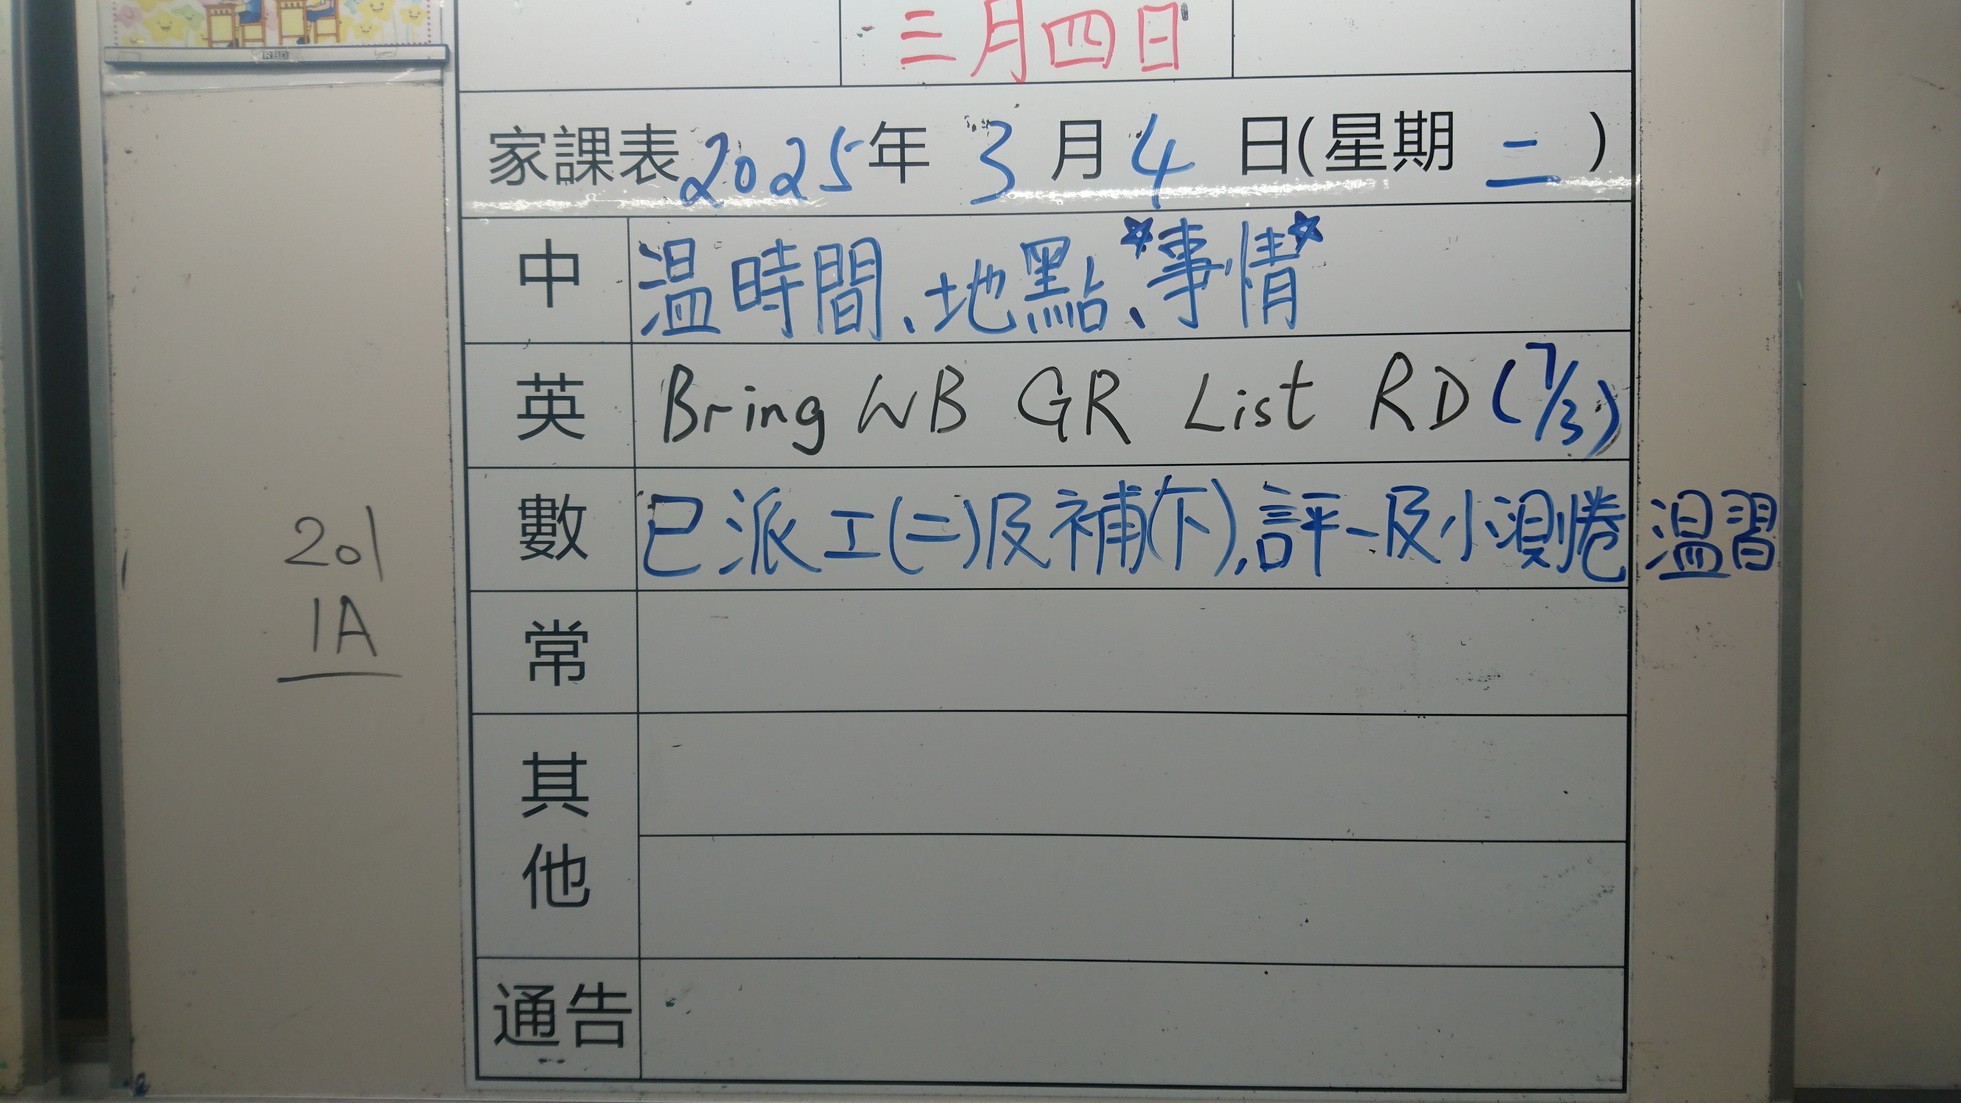 RBD
三月四日
家課表 2025年 3月4日(星期二)
中 温時間、地點、*事情*
英 Bring WB GR List RD (7/3)
數 已派工(二)及補(下),評一及小測捲 温習
201
1A
常
其他
通告